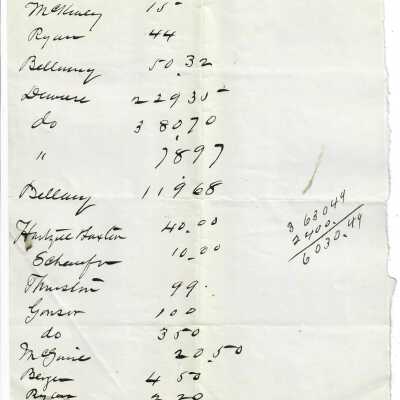 McKinley 15-
Ryan 44
Bellamy 50.32
Dewese 22930-
do 38070
" 7897
Bellamy 11968
40.00
10.00
Thurston 99.
Gonser 100
do 350
McGuire 20.50
Berger 4 50
2 20
3 630 49
2400.
6030.49